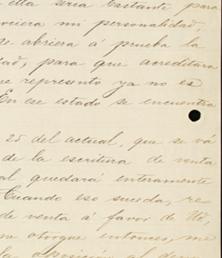 ella seria bastante para
ciera mi personalidad,
se abriera á prueba la
dad, para que acreditara
que represento ya no es
En ese estado se encuentra
25 del actual, que se vá
de la escritura de venta
al quedará enteramente
Cuando eso suceda, re
de venta á favor de
otorgue entonces, me
la